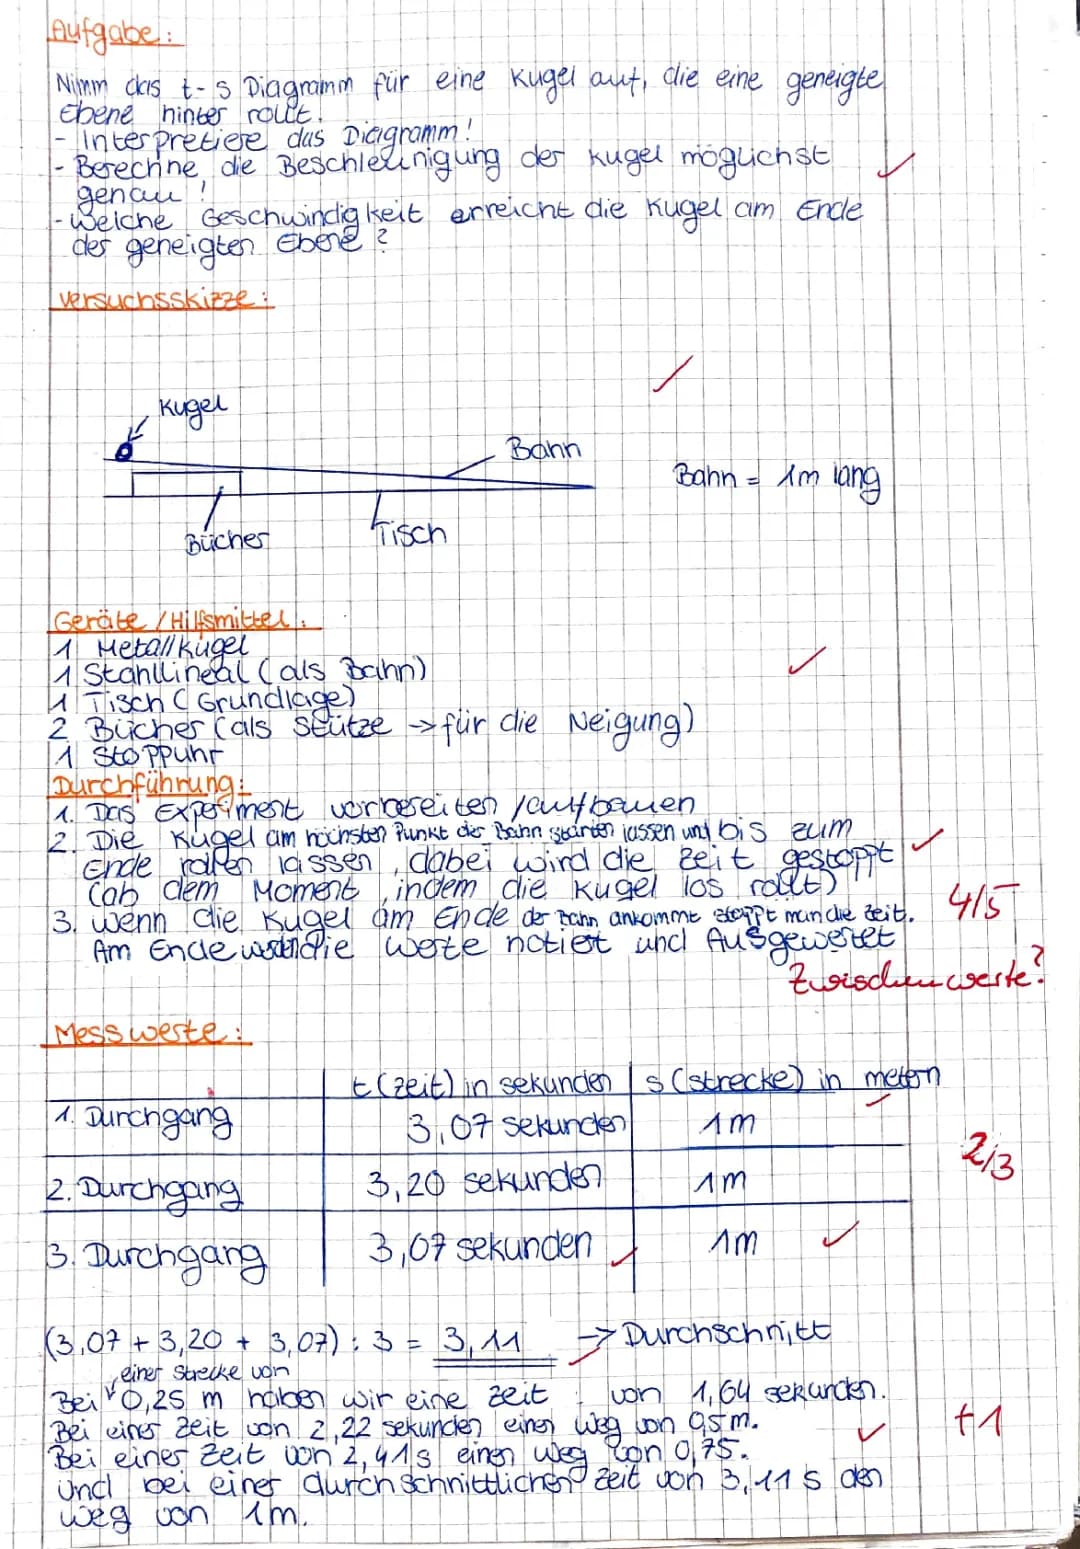 Aufgabe:
Nimm das t-s Diagramm für eine Kugel auf, die eine geneigte
Ebene hinter rollt.
- Interpretiere das Diagramm!
- Berechne die Beschleunigung der Kugel möglichst
genau!
- Welche Geschwindigkeit erreicht die Kugel am Ende
der geneigten Ebene?
Versuchsskizze:
Kugel
Bahn
Bahn = 1m lang
Bücher
Tisch
Geräte / Hilfsmittel:
1 Metallkugel
1 Stahllineal (als Bahn)
1 Tisch (Grundlage)
2 Bücher (als Stütze → für die Neigung)
1 Stoppuhr
Durchführung:
1. Das Experiment vorbereiten / aufbauen
2. Die Kugel am höchsten Punkt der Bahn starten lassen und bis zum
Ende rollen lassen, dabei wird die Zeit gestoppt
(ab dem Moment, indem die Kugel los rollt)
4/5
3. Wenn die Kugel am Ende der Bahn ankommt stoppt man die Zeit.
Am Ende werden die Werte notiert und Ausgewertet
Zwischenwerte?
Messwerte:
t (Zeit) in sekunden s (strecke) in metern
1. Durchgang 3,07 sekunden 1m
2/3
2. Durchgang 3,20 sekunden 1m
3. Durchgang 3,07 sekunden 1m
(3,07 + 3,20 + 3,07) : 3 = 3,11 → Durchschnitt
einer Strecke von
Bei 0,25 m haben wir eine Zeit von 1,64 sekunden.
Bei einer Zeit von 2,22 sekunden einen Weg von 0,5m.
+1
Bei einer Zeit von 2,41s einen Weg von 0,75.
Und bei einer durchschnittlichen Zeit von 3,11 s den
Weg von 1m.